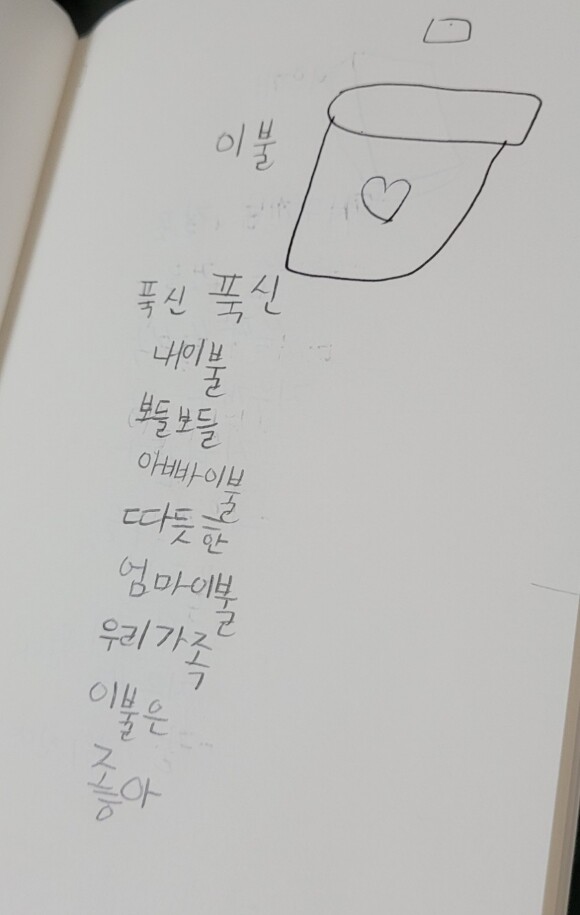 이불
푹신 푹신
내이불
보들보들
아빠이불
따듯한
엄마이불
우리가족
이불은
좋아